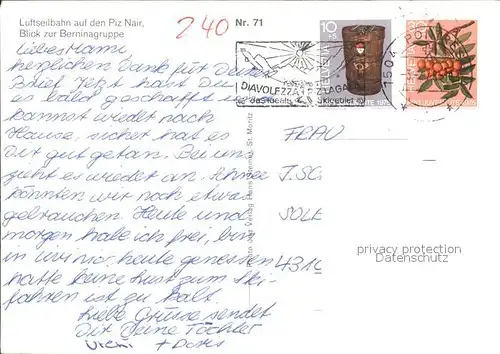 Luftseilbahn auf den Piz Nair,
Blick zur Berninagruppe
240
Nr. 71
Liebes Mami,
herzlichen Dank für Deinen
Brief. Jetzt hast Du
es bald geschafft u
kannst wieder nach
Hause, sicher hat es
Dir gut getan. Bei uns
geht es wieder an. Schnee
könnten wir noch etwas
gebrauchen. Heute und
morgen habe ich frei, bin
in
heute
hatte keine Lust zum Ski-
fahren ist zu kalt.
Liebe Grüsse sendet
Dir Deine Töchter
+ Doris
10
HELVETIA
DIAVOLEZZA LAGALB
das ideale Skigebiet
1504
FRAU
J. SC
SOLE
431
St. Moritz
privacy protection
Datenschutz